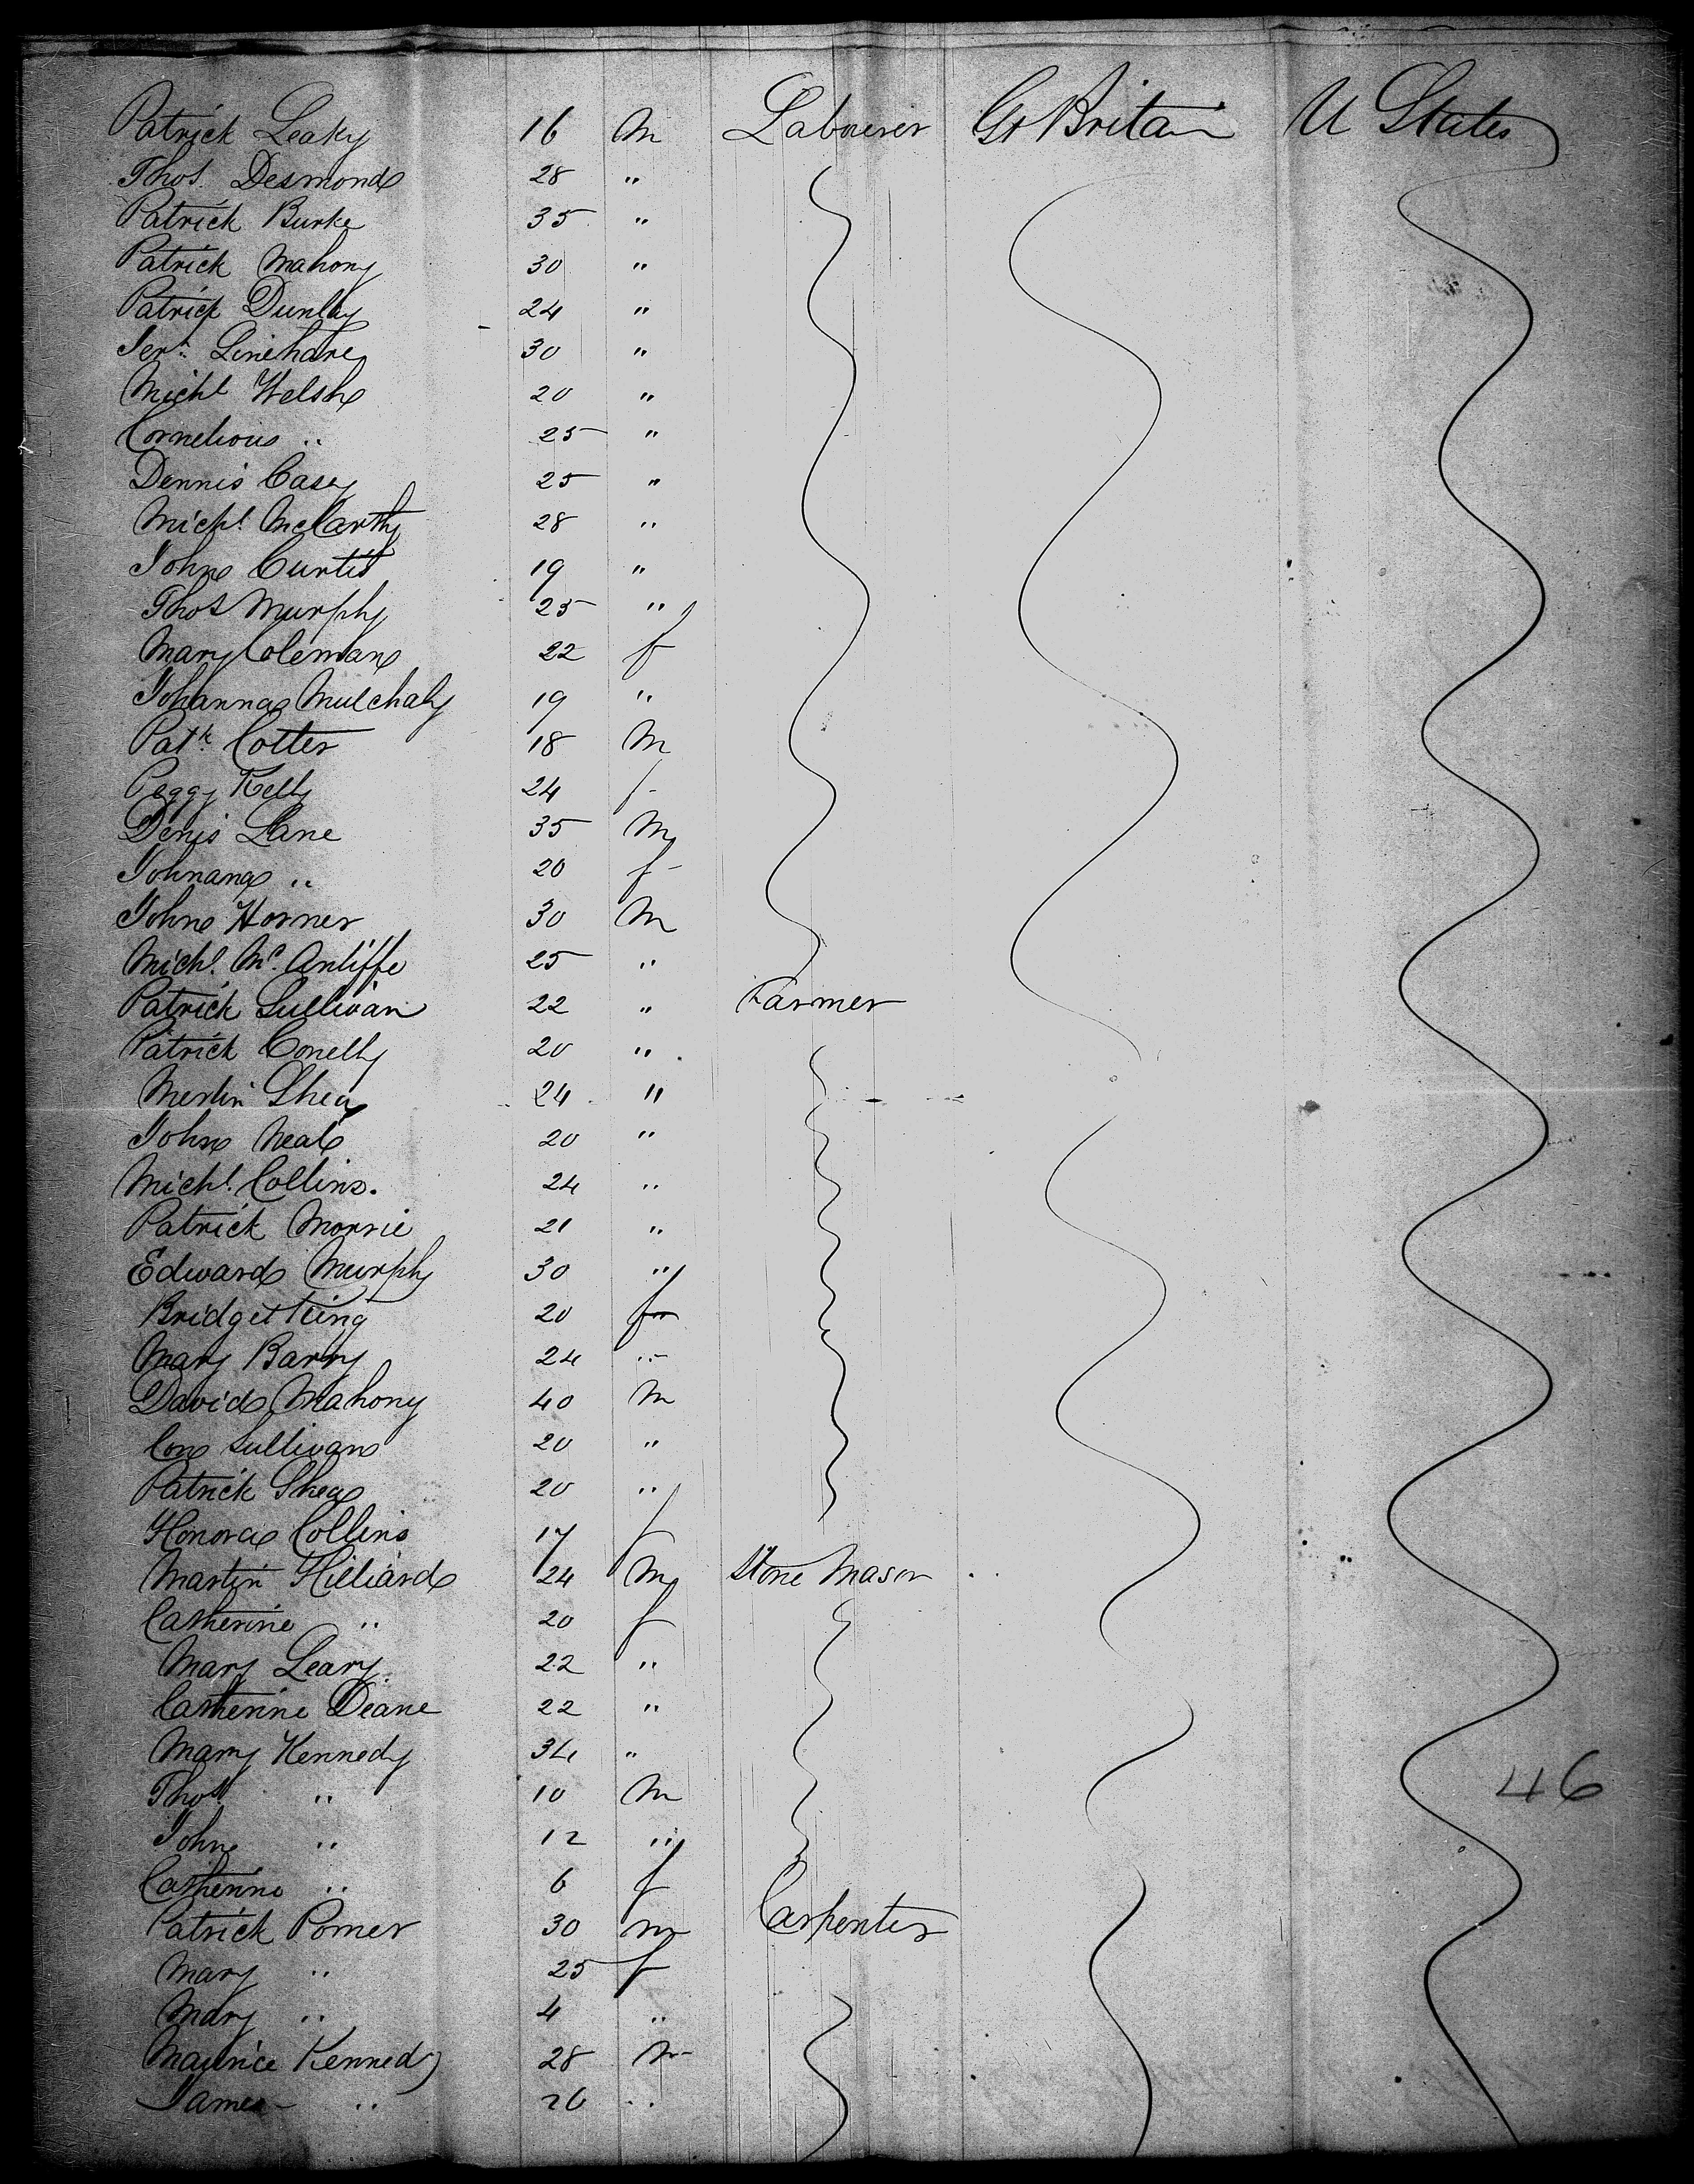 Patrick Leaky 16 M Labourer Gr Britain U States
Thos. Desmond 28 "
Patrick Burke 35 "
Patrick Mahony 30 "
Patrick Dunlay 24 "
Jerh. Linehane 30 "
Michl Welsh 20 "
Cornelious " 25 "
Dennis Casey 25 "
Michl. McCarthy 28 "
John Curtis 19 "
Thos Murphy 25 "
Mary Coleman 22 f
Johanna Mulchahy 19 "
Patk. Cotter 18 M
Peggy Kelly 24 f
Denis Lane 35 M
Johnana " 20 f
John Horner 30 M
Michl. Mc. Anliffe 25 "
Patrick Sullivan 22 " Farmer
Patrick Conelly 20 "
Mertin Shea 24 "
John Neal 20 "
Michl. Collins. 24 "
Patrick Morrie 21 "
Edward Murphy 30 "
Bridget King 20 f
Mary Barry 24 "
David Mahony 40 M
Con Sullivan 20 "
Patrick Shea 20 "
Honora Collins 17 f
Martin Hilliard 24 M Stone Mason
Catherine " 20 f
Mary Leary 22 "
Catherine Deane 22 "
Mary Kennedy 34 "
Thos " 10 M 46
John " 12 "
Catherine " 6 f
Patrick Pomer 30 m Carpenter
Mary " 25 f
Mary " 4 "
Maurice Kennedy 28 M
James " 26 "